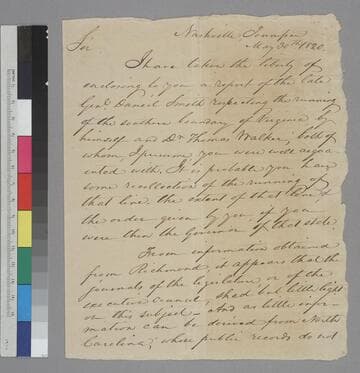 Nashville Tennessee
May 30th 1820.
Sir
I have taken the liberty of
enclosing to you a report of the late
Genl. Daniel Smith respecting the running
of the southern boundary of Virginia by
himself and Dr. Thomas Walker, both of
whom, I presume, you were well acqua-
inted with. It is probable you have
some recollection of the running of
that line, the extent of that line &
the order given by you, if you
were then the Governor of that state.
From information obtained
from Richmond, it appears that the
journals of the legislature, or of the
executive council, shed but little light
on this subject — And as little infor-
mation can be derived from North
Carolina, whose public records do not